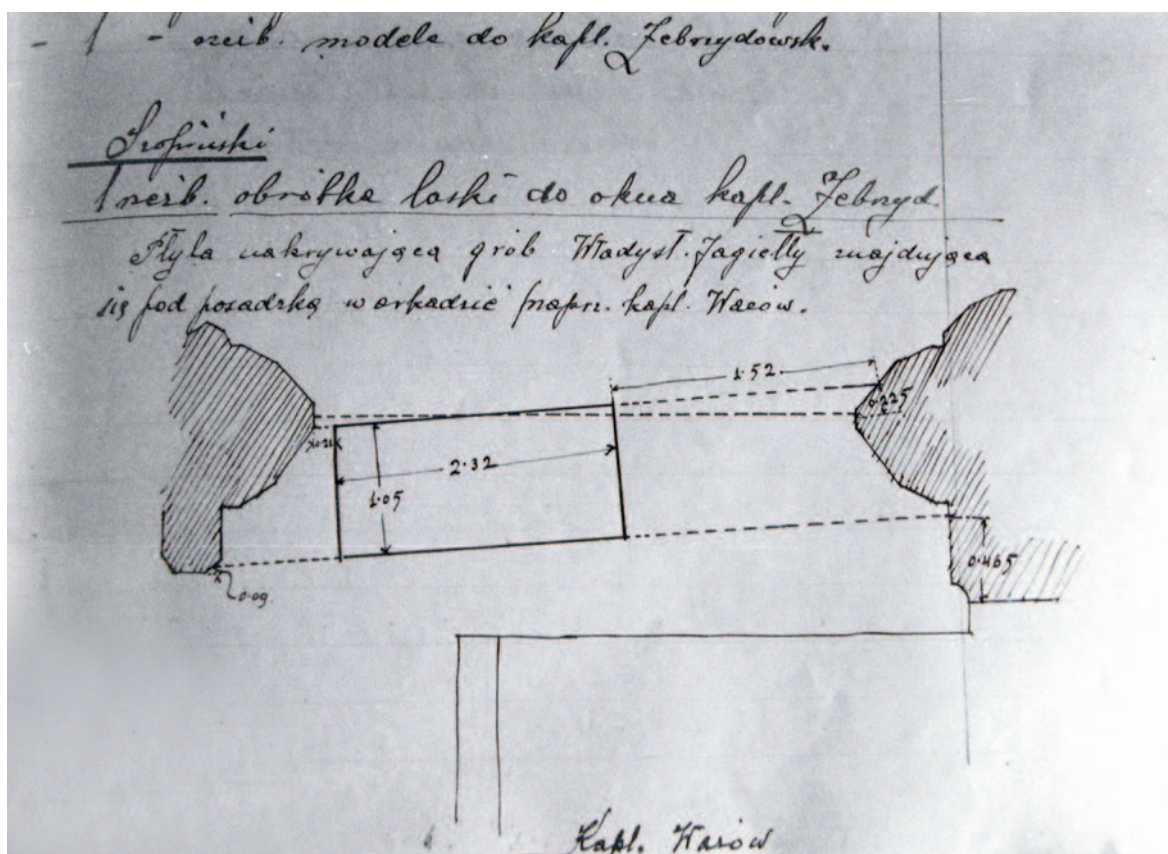 - 1 - rzeźb. modele do kapl. Zebrzydowsk.
1 rzeźb. obróbka laski do okna kapl. Zebrzyd.
Płyta nakrywająca grób Władysł. Jagiełły znajdująca
się pod posadzką w arkadzie napn. kapl. Wazów.
1·52
0·225
0·21
2·32
1·05
0·465
0·09
Kapl. Wazów